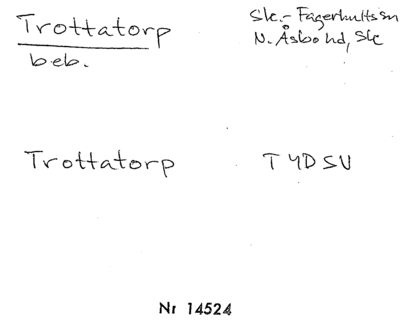 Trottatorp
Sk.- Fagerhults sn
beb.
N. Åsbo hd, Sk
Trottatorp
TYDSV
Nr 14524